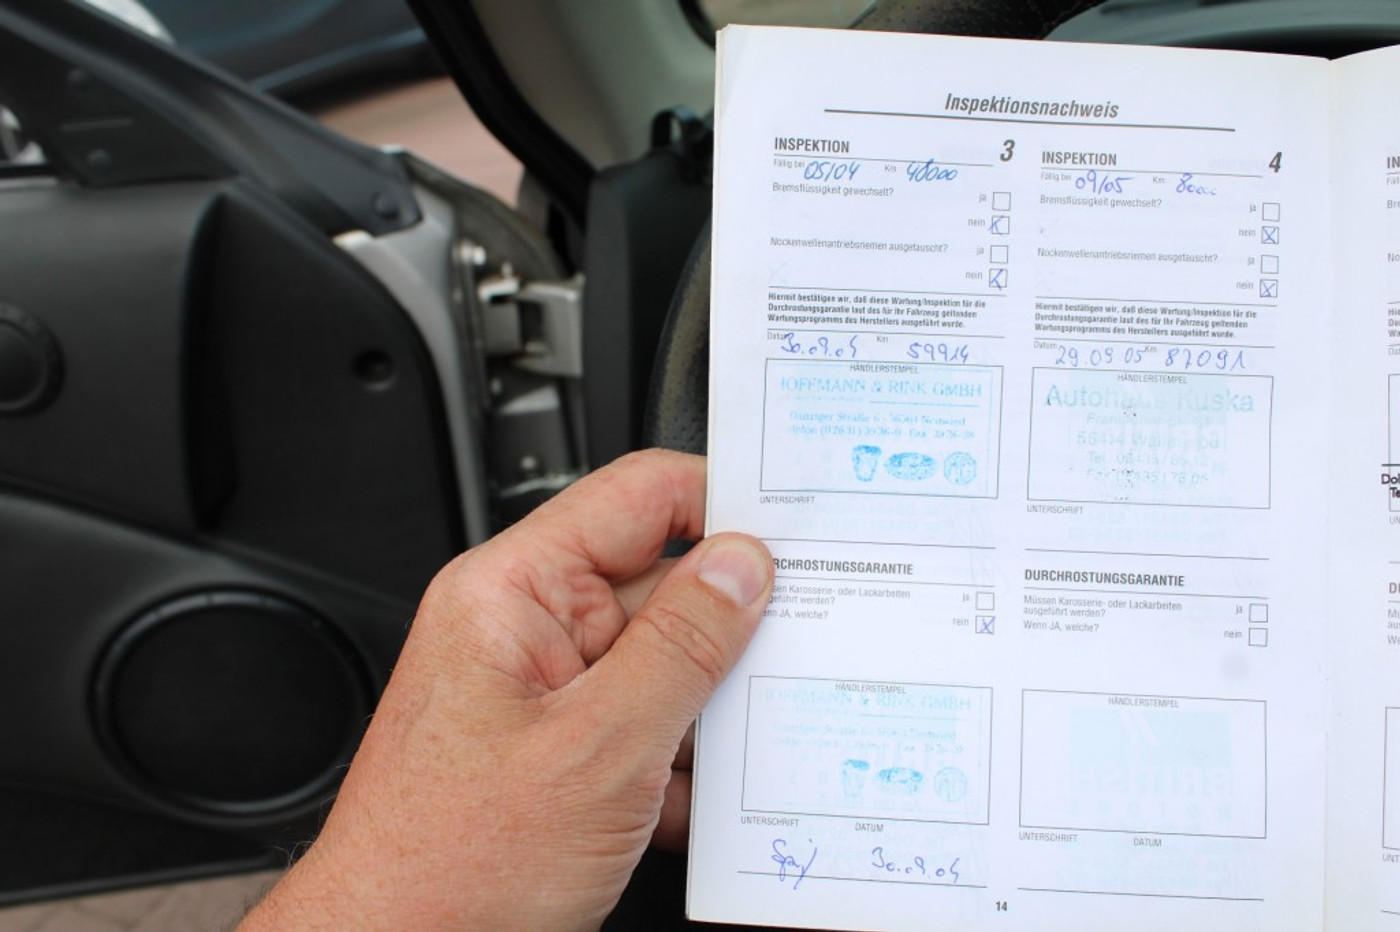 Inspektionsnachweis
INSPEKTION 3
Fällig bei 05/04 Km 48000
Bremsflüssigkeit gewechselt?
ja
nein
Nockenwellenantriebsriemen ausgetauscht?
ja
nein
Hiermit bestätigen wir, daß diese Wartung/Inspektion für die
Durchrostungsgarantie laut des für Ihr Fahrzeug geltenden
Wartungsprogramms des Herstellers ausgeführt wurde.
Datum 30.09.04 Km 59914
HÄNDLERSTEMPEL
HOFFMANN & RINK GMBH
UNTERSCHRIFT
DURCHROSTUNGSGARANTIE
Karosserie- oder Lackarbeiten
ja
werden?
JA, welche?
nein
HÄNDLERSTEMPEL
HOFFMANN & RINK GMBH
UNTERSCHRIFT DATUM
30.09.04
INSPEKTION 4
Fällig bei 09/05 Km 8000
Bremsflüssigkeit gewechselt?
ja
nein
Nockenwellenantriebsriemen ausgetauscht?
ja
nein
Hiermit bestätigen wir, daß diese Wartung/Inspektion für die
Durchrostungsgarantie laut des für Ihr Fahrzeug geltenden
Wartungsprogramms des Herstellers ausgeführt wurde.
Datum 29.09.05 Km 87091
HÄNDLERSTEMPEL
Autohaus Kuska
UNTERSCHRIFT
DURCHROSTUNGSGARANTIE
Müssen Karosserie- oder Lackarbeiten
ausgeführt werden?
ja
Wenn JA, welche?
nein
HÄNDLERSTEMPEL
UNTERSCHRIFT DATUM
14